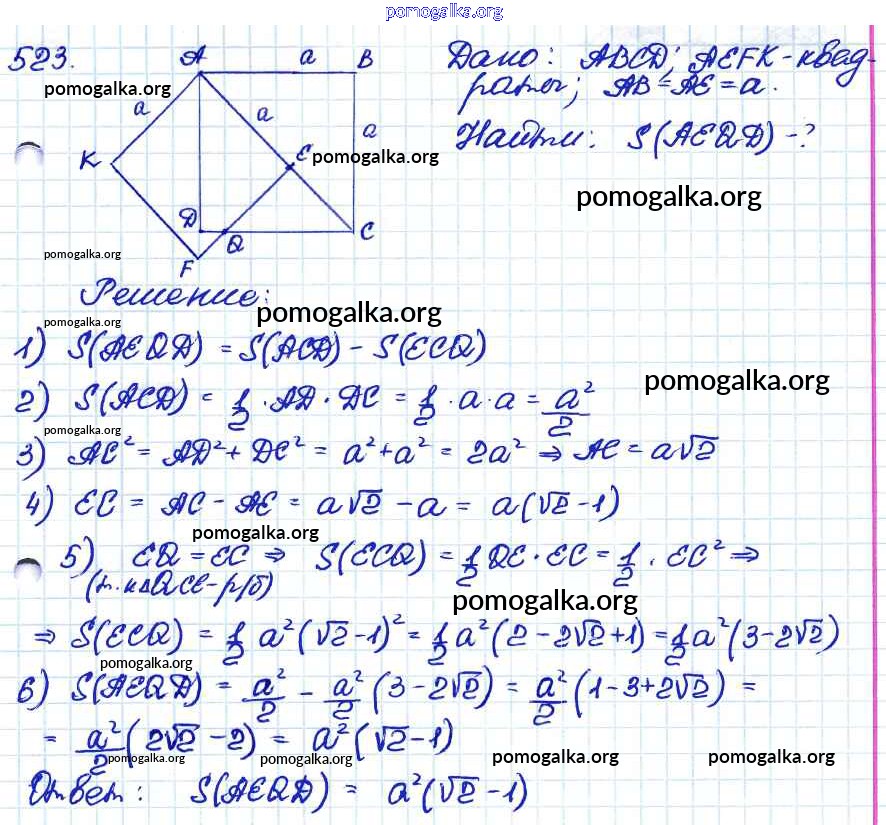 pomogalka.org
523.
pomogalka.org
A a B
a a a
K E pomogalka.org
D Q C
F
pomogalka.org
Дано: ABCD; AEFK - квад-
раты; AB = AE = a.
Найти: S(AEQD) - ?
pomogalka.org
Решение:
pomogalka.org
pomogalka.org
1) S(AEQD) = S(ACD) - S(ECQ)
pomogalka.org
2) S(ACD) = 1/2 · AD · DC = 1/2 · a · a = a²/2
pomogalka.org
3) AC² = AD² + DC² = a² + a² = 2a² ⇒ AC = a√2
4) EC = AC - AE = a√2 - a = a(√2 - 1)
pomogalka.org
5) EQ = EC ⇒ S(ECQ) = 1/2 QE · EC = 1/2 · EC² ⇒
(т.к ΔQCE - р/б)
pomogalka.org
⇒ S(ECQ) = 1/2 a²(√2 - 1)² = 1/2 a²(2 - 2√2 + 1) = 1/2 a²(3 - 2√2)
pomogalka.org
6) S(AEQD) = a²/2 - a²/2 (3 - 2√2) = a²/2 (1 - 3 + 2√2) =
= a²/2 (2√2 - 2) = a²(√2 - 1)
pomogalka.org pomogalka.org pomogalka.org pomogalka.org
Ответ: S(AEQD) = a²(√2 - 1)